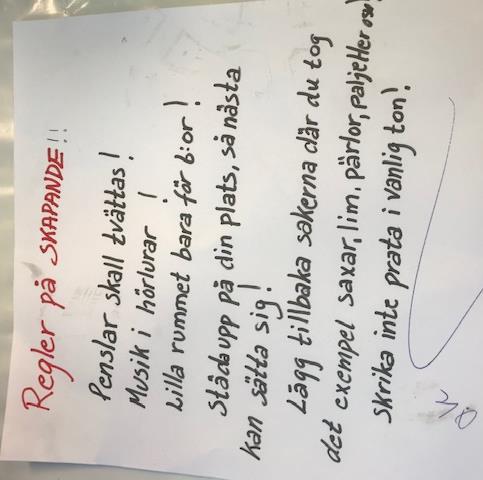 Regler på SKAPANDE!!
Penslar skall tvättas!
Musik i hörlurar!
Lilla rummet bara för 6:or!
Städa upp på din plats, så nästa
kan sätta sig!
Lägg tillbaka sakerna där du tog
det exempel saxar, lim, pärlor, paljetter osv!
Skrika inte prata i vanlig ton!